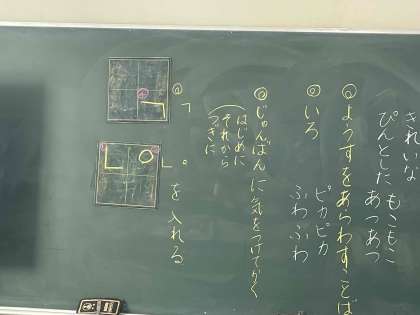 きれいな もこもこ
ぴんとした あつあつ
◎ようすをあらわすことば
◎いろ ピカピカ
ふわふわ
◎じゅんばんに気をつけてかく
(はじめに
それから
つぎに
◎ ┐
└ 。を入れる